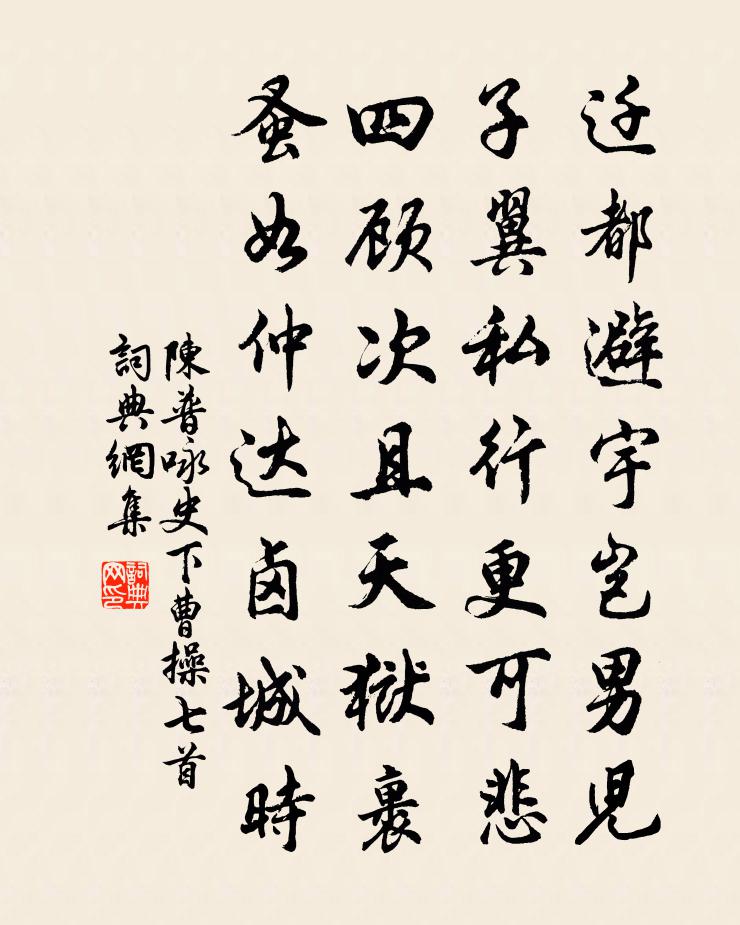 迁都避宇岂男児
子翼私行更可悲
四顾次且天獄裏
蚤如仲达卤城時
陳普咏史下曹操七首
詞典網集
詞典网印